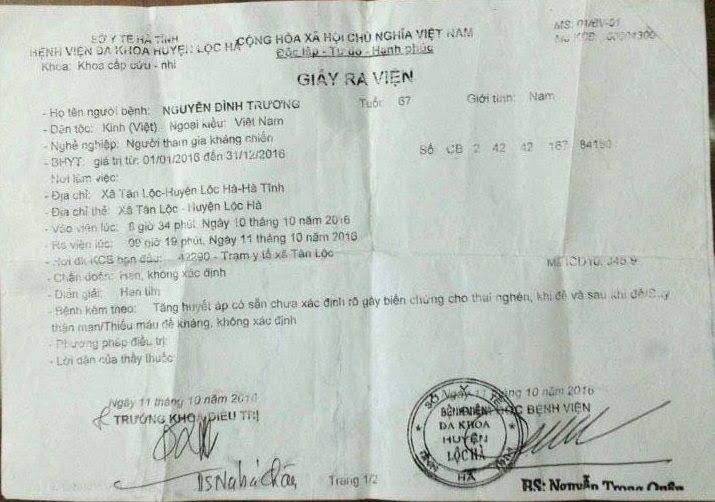 SỞ Y TẾ HÀ TĨNH
BỆNH VIỆN ĐA KHOA HUYỆN LỘC HÀ
Khoa: Khoa cấp cứu - nhi
CỘNG HÒA XÃ HỘI CHỦ NGHĨA VIỆT NAM
Độc lập - Tự do - Hạnh phúc
MS: 01/BV-01
GIẤY RA VIỆN
- Họ tên người bệnh: NGUYỄN ĐÌNH TRƯƠNG Tuổi: 67 Giới tính: Nam
- Dân tộc: Kinh (Việt) Ngoại kiều: Việt Nam
- Nghề nghiệp: Người tham gia kháng chiến
- BHYT: giá trị từ: 01/01/2016 đến 31/12/2016 Số CB 2 42 42 167
- Nơi làm việc:
- Địa chỉ: Xã Tân Lộc-Huyện Lộc Hà-Hà Tĩnh
- Địa chỉ thẻ: Xã Tân Lộc - Huyện Lộc Hà
- Vào viện lúc: giờ 34 phút, Ngày 10 tháng 10 năm 2016
- Ra viện lúc: 09 giờ 19 phút, Ngày 11 tháng 10 năm 2016
- Nơi đk KCB ban đầu: 42290 - Trạm y tế xã Tân Lộc
- Chẩn đoán: Hen, không xác định Mã ICD10: J45.9
- Diễn giải: Hen tim
- Bệnh kèm theo: Tăng huyết áp có sẵn chưa xác định rõ gây biến chứng cho thai nghén, khi đẻ và sau khi đẻ/Suy
thận mạn/Thiếu máu đề kháng, không xác định
- Phương pháp điều trị:
- Lời dặn của thầy thuốc:
Ngày 11 tháng 10 năm 2016
TRƯỞNG KHOA ĐIỀU TRỊ
Ngày 11 tháng 10 năm 2016
BỆNH VIỆN
SỞ Y TẾ
BỆNH VIỆN
ĐA KHOA
HUYỆN
LỘC HÀ
Trang 1/2
BS: Nguyễn Trọng